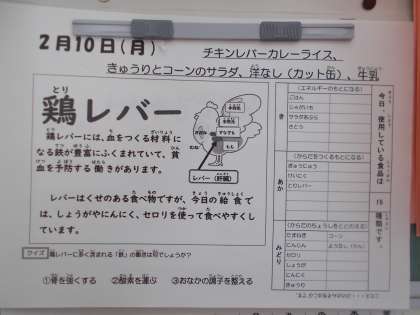 2月10日(月)
チキンレバーカレーライス、
きゅうりとコーンのサラダ、洋なし(カット缶)、牛乳
鶏レバー
鶏レバーには、血をつくる材料に
なる鉄が豊富にふくまれていて、貧
血を予防する働きがあります。
レバー(肝臓)
レバーはくせのある食べ物ですが、今日の給食で
は、しょうがやにんにく、セロリを使って食べやすくし
ています。
クイズ 鶏レバーに多く含まれる「鉄」の働きは何でしょうか?
①骨を強くする ②酸素を運ぶ ③おなかの調子を整える
今日、使用している食品は
種類です。
き
(エネルギーのもとになる)
ごはん
じゃがいも
サラダあぶら
さとう
あか
(からだをつくるもとになる)
ぎゅうにゅう
とりレバー
みどり
(からだのちょうしをととのえる)
たまねぎ コーン
にんじん ようなし
セロリ
しょうが
にんにく
きゅうり